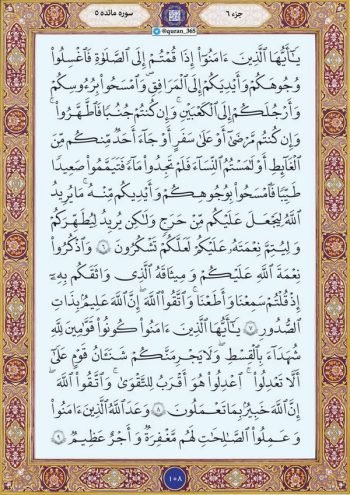 جزء ۶
@quran_365
سوره مائده ۵
يَٰٓأَيُّهَا ٱلَّذِينَ ءَامَنُوٓا۟ إِذَا قُمْتُمْ إِلَى ٱلصَّلَوٰةِ فَٱغْسِلُوا۟
وُجُوهَكُمْ وَأَيْدِيَكُمْ إِلَى ٱلْمَرَافِقِ وَٱمْسَحُوا۟ بِرُءُوسِكُمْ
وَأَرْجُلَكُمْ إِلَى ٱلْكَعْبَيْنِ ۚ وَإِن كُنتُمْ جُنُبًا فَٱطَّهَّرُوا۟ ۚ
وَإِن كُنتُم مَّرْضَىٰٓ أَوْ عَلَىٰ سَفَرٍ أَوْ جَآءَ أَحَدٌ مِّنكُم مِّنَ
ٱلْغَآئِطِ أَوْ لَٰمَسْتُمُ ٱلنِّسَآءَ فَلَمْ تَجِدُوا۟ مَآءً فَتَيَمَّمُوا۟ صَعِيدًا
طَيِّبًا فَٱمْسَحُوا۟ بِوُجُوهِكُمْ وَأَيْدِيكُم مِّنْهُ ۚ مَا يُرِيدُ
ٱللَّهُ لِيَجْعَلَ عَلَيْكُم مِّنْ حَرَجٍ وَلَٰكِن يُرِيدُ لِيُطَهِّرَكُمْ
وَلِيُتِمَّ نِعْمَتَهُۥ عَلَيْكُمْ لَعَلَّكُمْ تَشْكُرُونَ ۶ وَٱذْكُرُوا۟
نِعْمَةَ ٱللَّهِ عَلَيْكُمْ وَمِيثَٰقَهُ ٱلَّذِى وَاثَقَكُم بِهِۦٓ
إِذْ قُلْتُمْ سَمِعْنَا وَأَطَعْنَا ۖ وَٱتَّقُوا۟ ٱللَّهَ ۚ إِنَّ ٱللَّهَ عَلِيمٌۢ بِذَاتِ
ٱلصُّدُورِ ۷ يَٰٓأَيُّهَا ٱلَّذِينَ ءَامَنُوا۟ كُونُوا۟ قَوَّٰمِينَ لِلَّهِ
شُهَدَآءَ بِٱلْقِسْطِ ۖ وَلَا يَجْرِمَنَّكُمْ شَنَـَٔانُ قَوْمٍ عَلَىٰٓ
أَلَّا تَعْدِلُوا۟ ۚ ٱعْدِلُوا۟ هُوَ أَقْرَبُ لِلتَّقْوَىٰ ۖ وَٱتَّقُوا۟ ٱللَّهَ ۚ
إِنَّ ٱللَّهَ خَبِيرٌۢ بِمَا تَعْمَلُونَ ۸ وَعَدَ ٱللَّهُ ٱلَّذِينَ ءَامَنُوا۟
وَعَمِلُوا۟ ٱلصَّٰلِحَٰتِ لَهُم مَّغْفِرَةٌ وَأَجْرٌ عَظِيمٌ ۹
۱۰۸